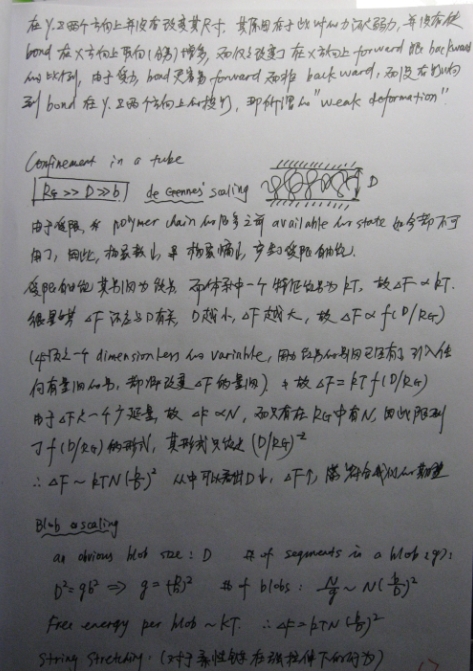 在 Y. Z 两个方向上并没有改变其尺寸. 其原因在于此时外力仍太弱力, 并没有使
bond 在 X 方向上取向 (分布) 增多, 而仅是改变了在 X 方向上 forward 跟 backward
的比例, 由于受力, bond 更容易 forward 而非 backward, 而没有影响
到 bond 在 Y. Z 两个方向上的投影, 即所谓的 "weak deformation".
Confinement in a tube
RG >> D >> b de Gennes' scaling D
由于受限, 令 polymer chain 的很多之前 available 的 state 如今却不可
用了, 因此, 构象数↓, 即 构象熵↓, 产生受限自由能.
受限自由能其量纲为能量 而体系中一个特征能量为 kT, 故 ΔF ∝ kT.
很显然 ΔF 该与 D 有关, D 越小, ΔF 越大, 故 ΔF ∝ f(D/RG)
(必须是一个 dimensionless 的 variable, 因为能量的量纲已经有了, 引入任
何有量纲的量, 都将改变 ΔF 的量纲) 故 ΔF = kT f(D/RG)
由于 ΔF 是一个广延量, 故 ΔF ∝ N, 而只有在 RG 中有 N, 因此限制
了 f(D/RG) 的形式, 其形式只能是 (D/RG)^-2
∴ ΔF ~ kTN(b/D)² 从中可以看出 D↓, ΔF↑, 符合我们的期望
Blob scaling
an obvious blob size: D # of segments in a blob (g):
D² = gb² ⇒ g = (D/b)² # of blobs: N/g ~ N(b/D)²
Free energy per blob ~ kT. ∴ ΔF = kTN(b/D)²
String Stretching. (对于柔性链在强拉伸下的行为)